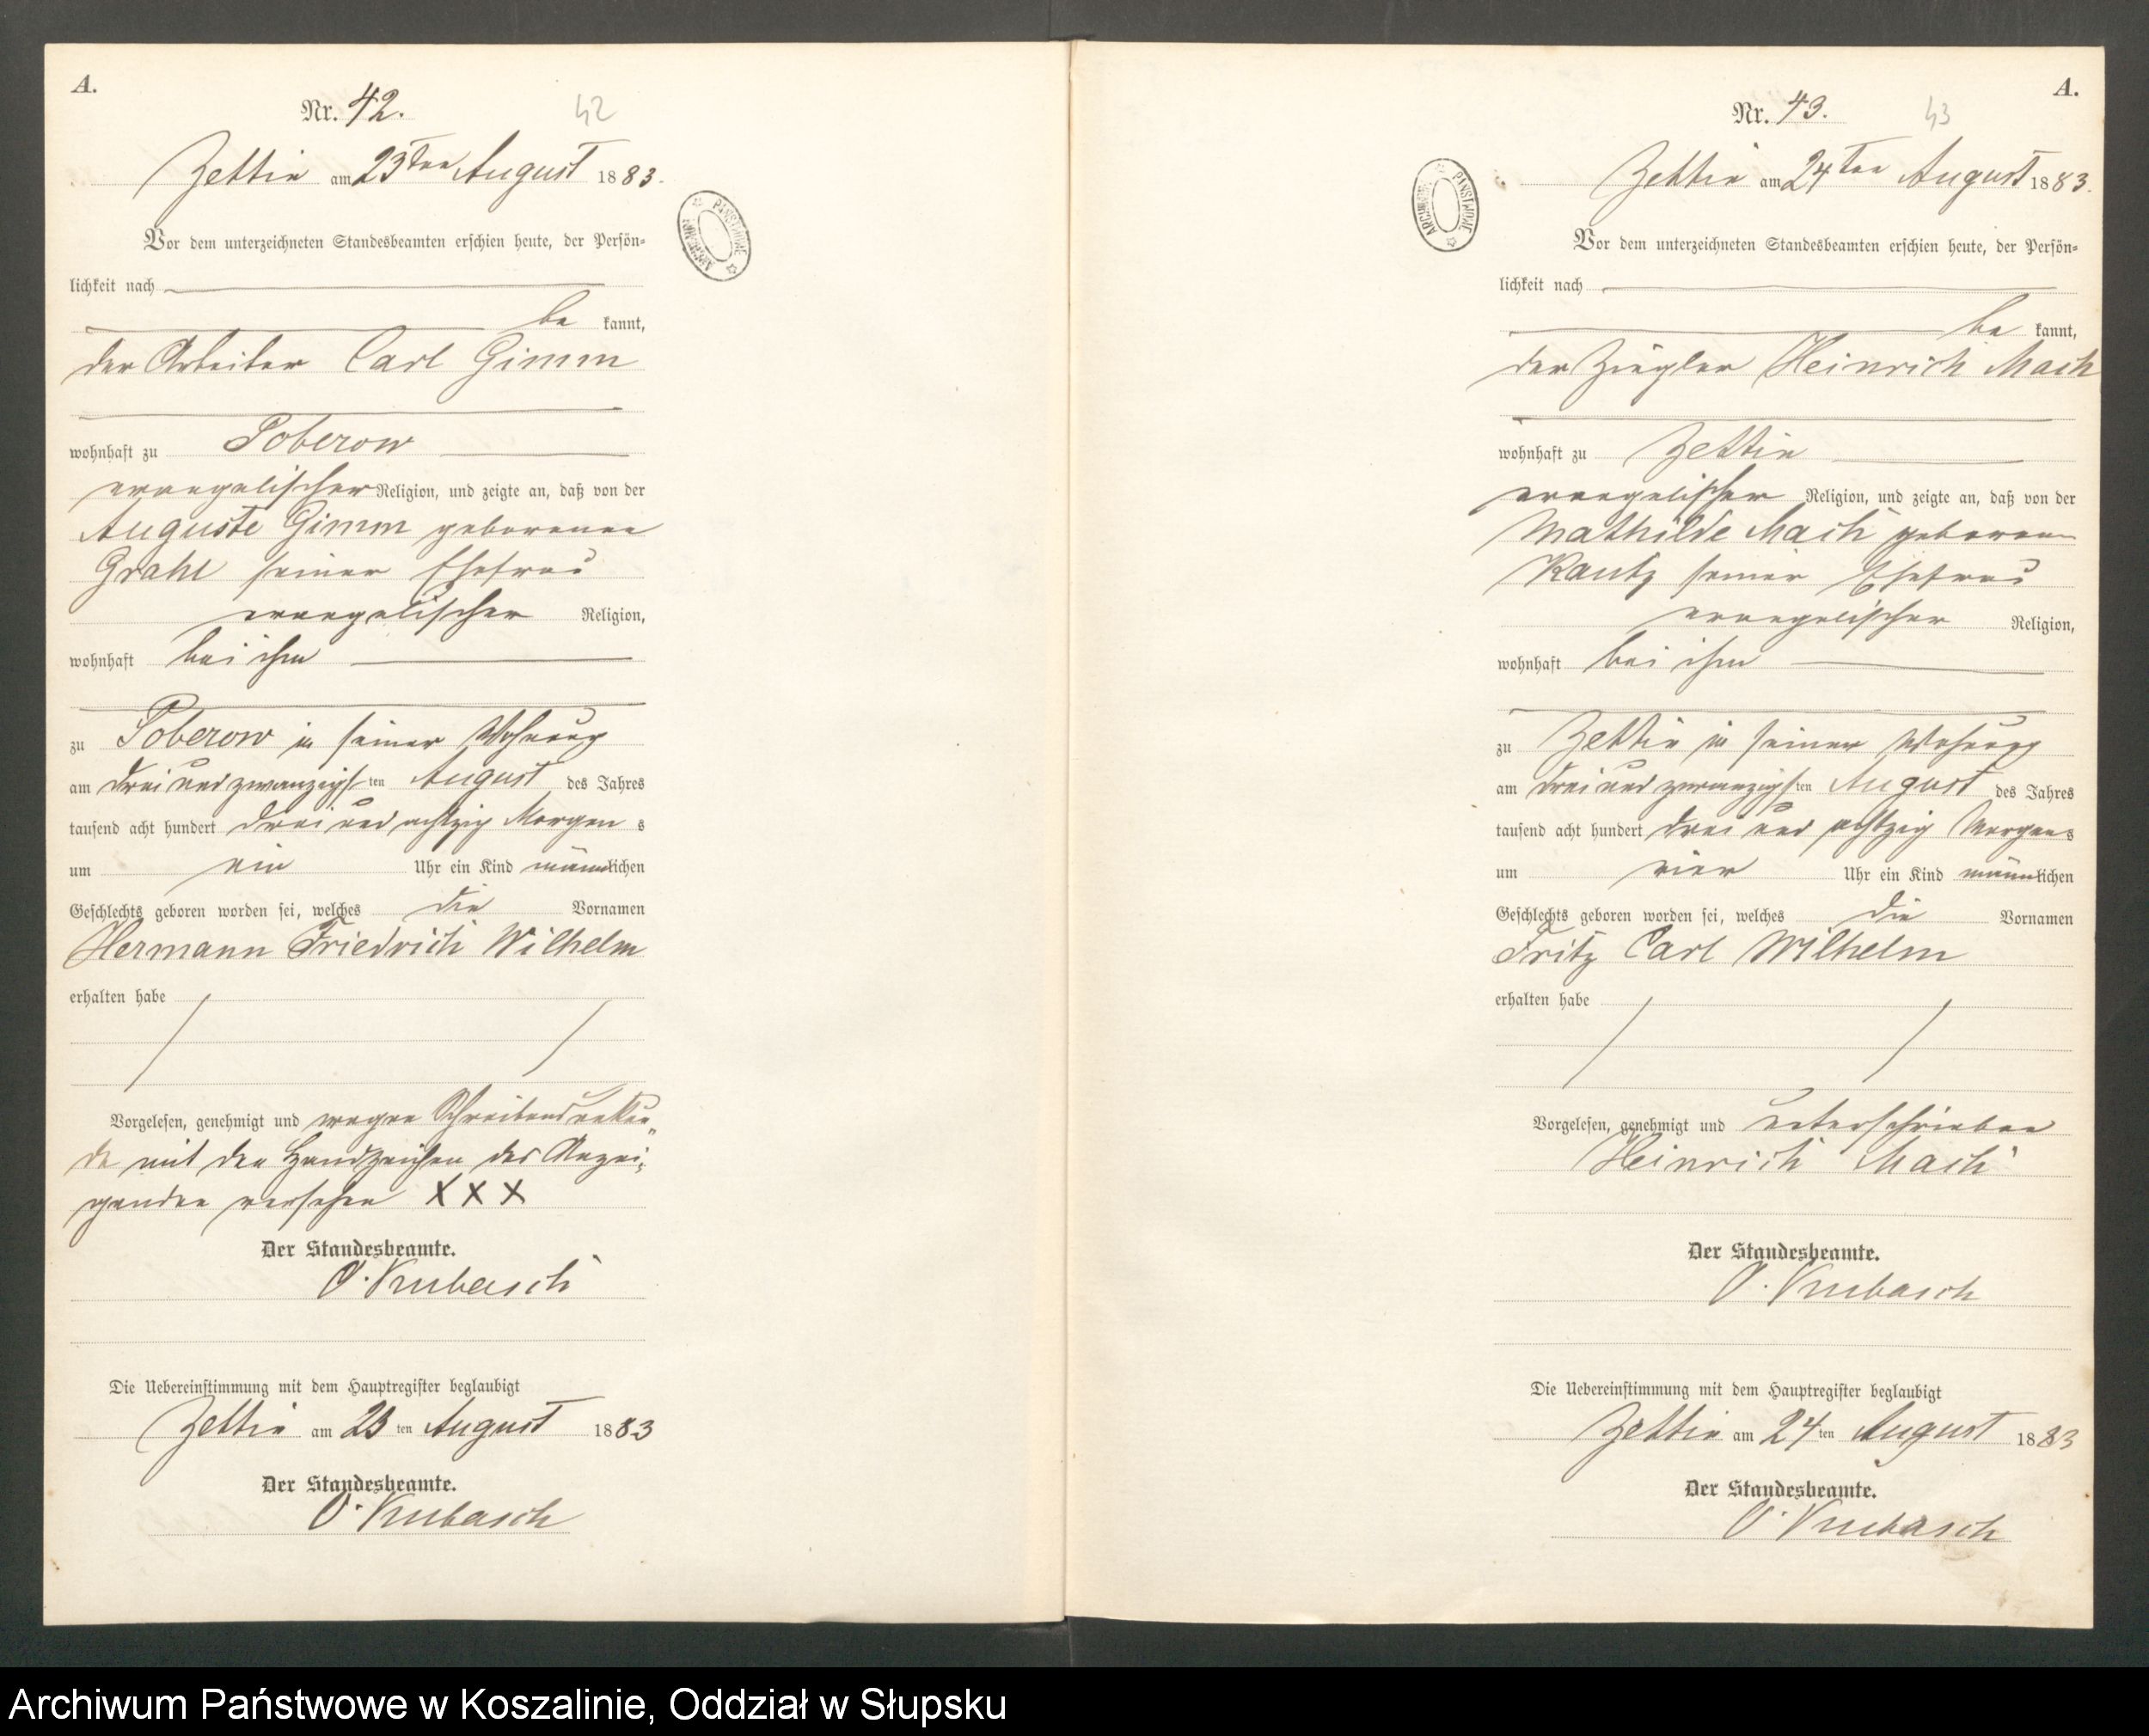 A.
Nr. 42.
42
Zettin am 23ten August 1883.
ARCHIWUM PAŃSTWOWE
Vor dem unterzeichneten Standesbeamten erschien heute, der Persön-
lichkeit nach
be kannt,
der Arbeiter Carl Gimm
wohnhaft zu Poberow
evangelischer Religion, und zeigte an, daß von der
Auguste Gimm geborenen
Grahl seiner Ehefrau
evangelischer Religion,
wohnhaft bei ihm
zu Poberow in seiner Wohnung
am drei und zwanzigsten August des Jahres
tausend acht hundert drei und achtzig Morgens
um ein Uhr ein Kind männlichen
Geschlechts geboren worden sei, welches die Vornamen
Hermann Friedrich Wilhelm
erhalten habe
Vorgelesen, genehmigt und wegen Schreibensunkun-
de mit den Handzeichen des Anzei-
genden versehen XXX
Der Standesbeamte.
O. Kubasch
Die Uebereinstimmung mit dem Hauptregister beglaubigt
Zettin am 23 ten August 1883
Der Standesbeamte.
O. Kubasch
A.
Nr. 43.
43
Zettin am 24ten August 1883.
ARCHIWUM PAŃSTWOWE
Vor dem unterzeichneten Standesbeamten erschien heute, der Persön-
lichkeit nach
be kannt,
der Ziegler Heinrich Mach
wohnhaft zu Zettin
evangelischer Religion, und zeigte an, daß von der
Mathilde Mach geborenen
Kautz seiner Ehefrau
evangelischer Religion,
wohnhaft bei ihm
zu Zettin in seiner Wohnung
am drei und zwanzigsten August des Jahres
tausend acht hundert drei und achtzig Morgens
um vier Uhr ein Kind männlichen
Geschlechts geboren worden sei, welches die Vornamen
Fritz Carl Wilhelm
erhalten habe
Vorgelesen, genehmigt und unterschrieben
Heinrich Mach
Der Standesbeamte.
O. Kubasch
Die Uebereinstimmung mit dem Hauptregister beglaubigt
Zettin am 24 ten August 1883
Der Standesbeamte.
O. Kubasch
Archiwum Państwowe w Koszalinie, Oddział w Słupsku